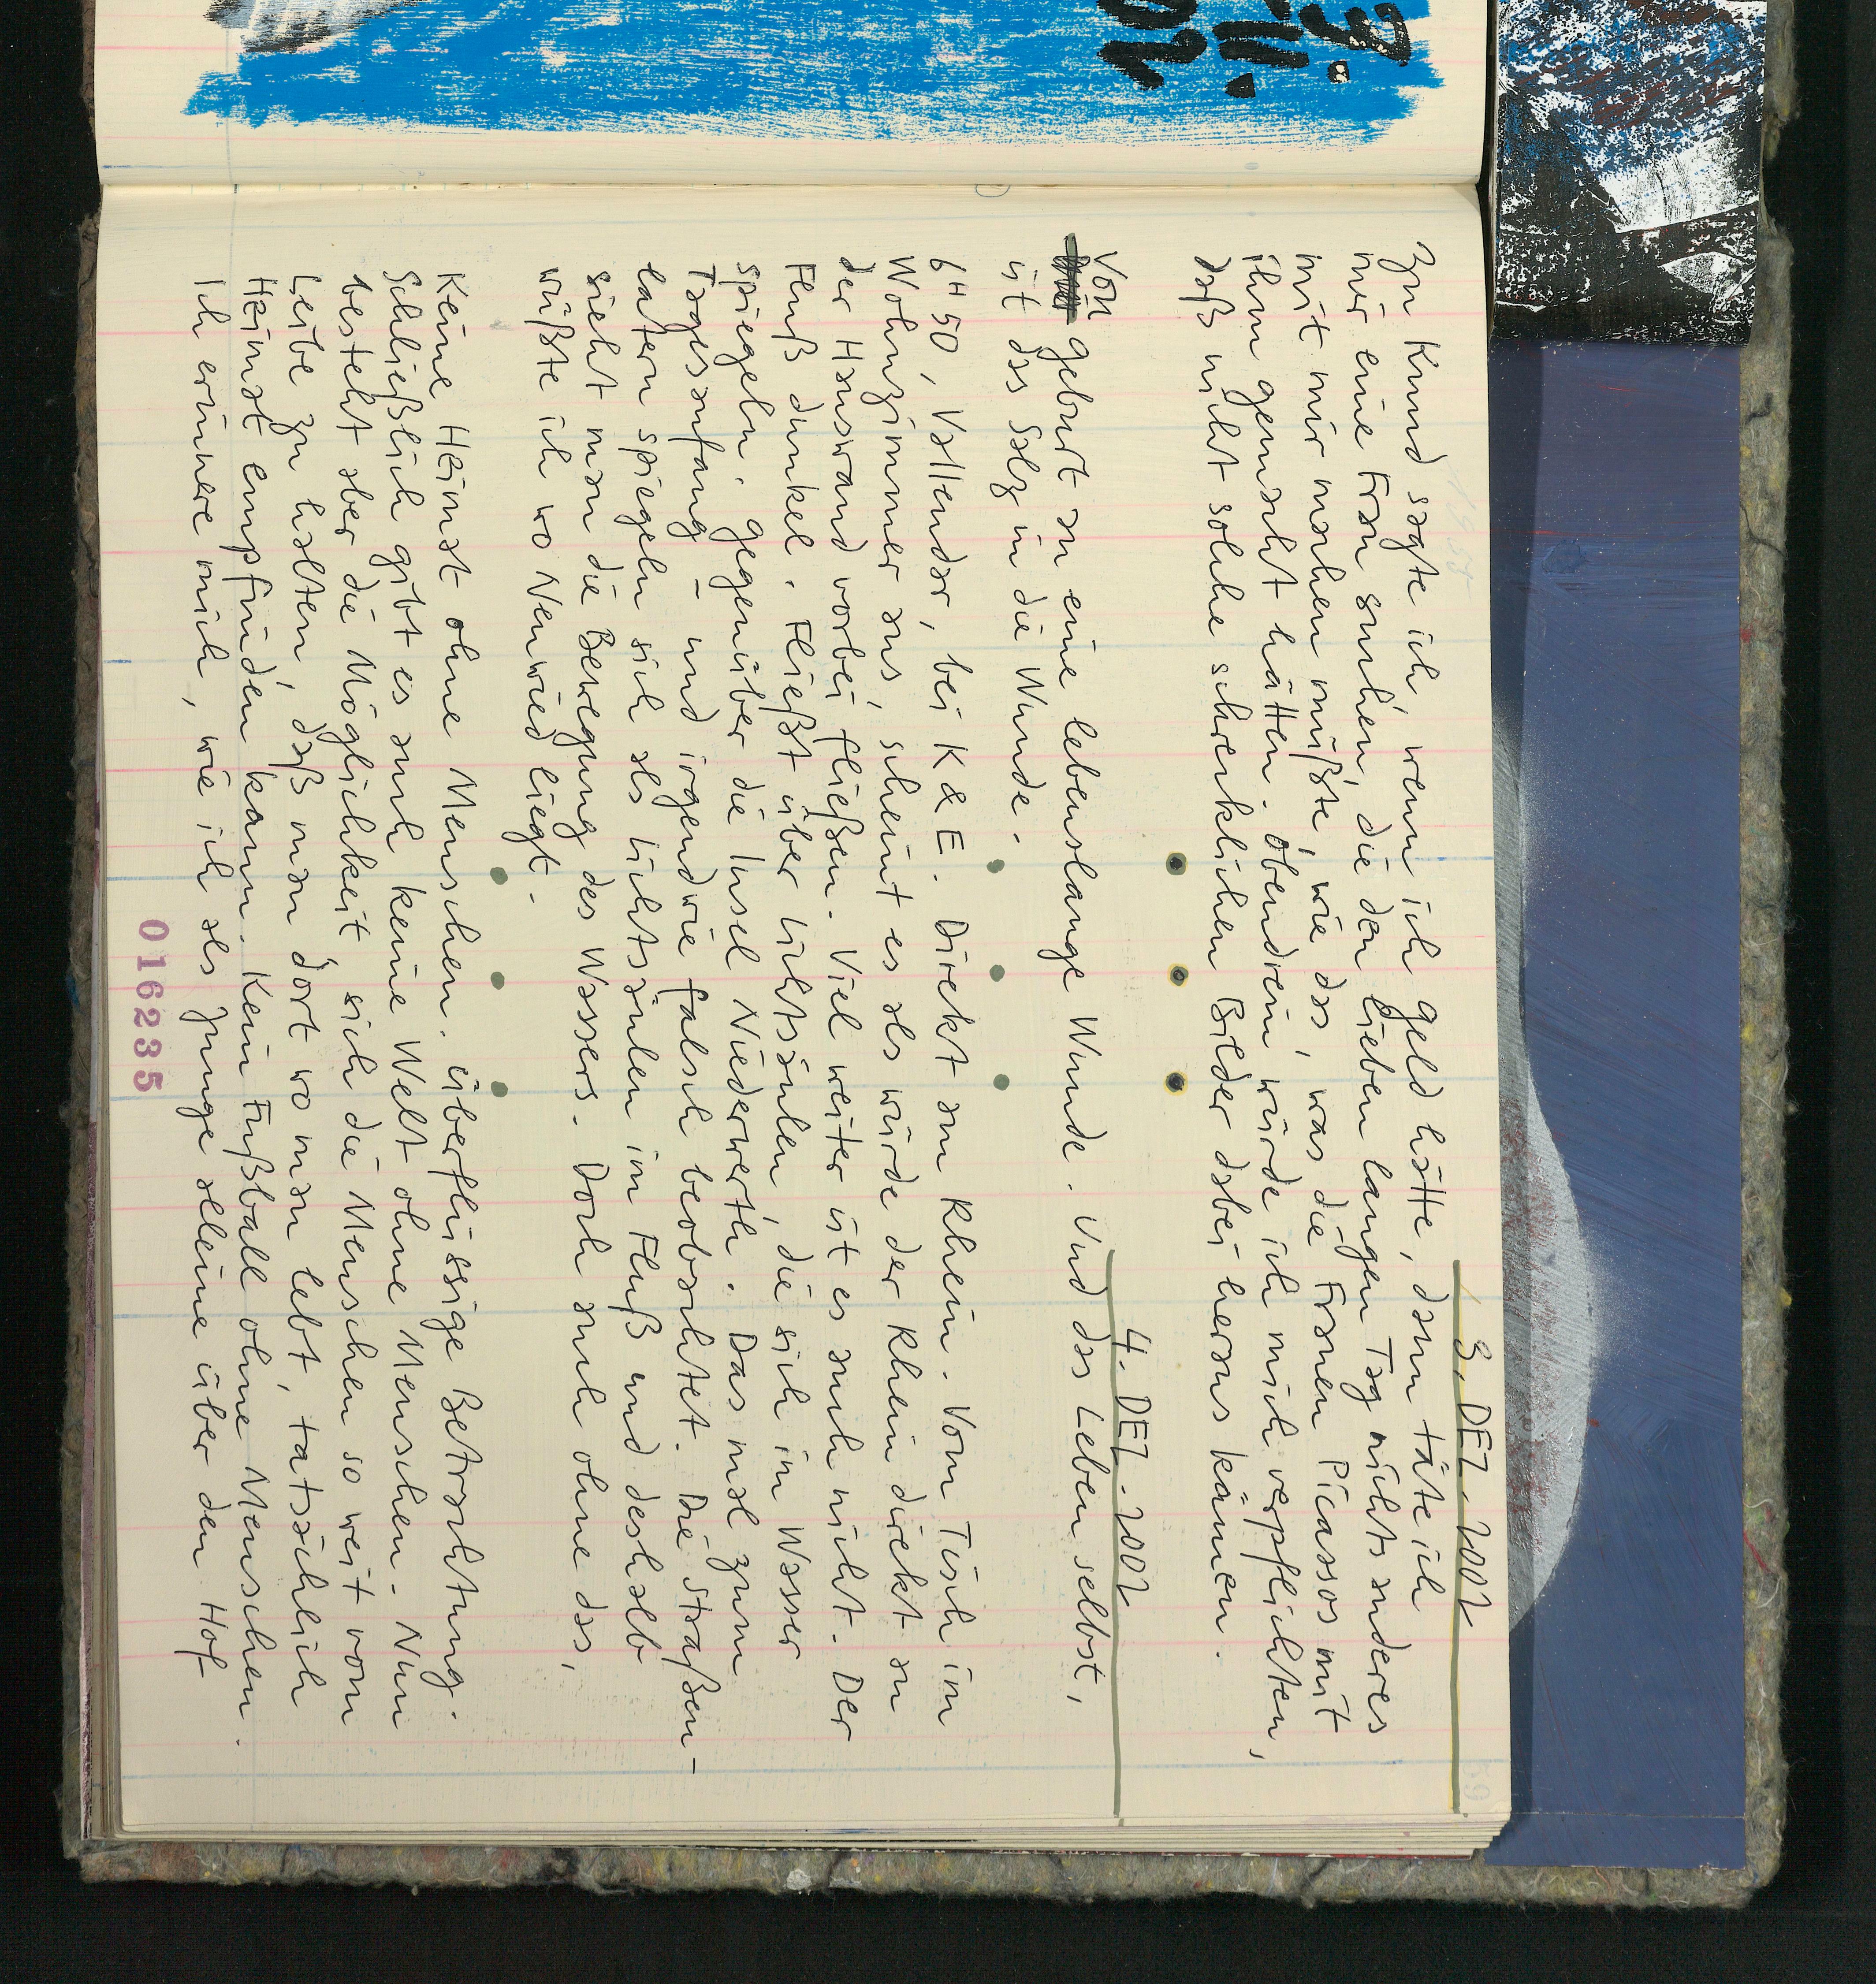 3. DEZ. 2002
Zu Knud sagte ich, wenn ich Geld hätte, dann täte ich
mir eine Frau suchen, die den lieben langen Tag nichts anderes
mit mir machen müßte, wie das, was die Frauen Picassos mit
ihm gemacht hätten. Obendrein würde ich mich verpflichten,
daß nicht solche schrecklichen Bilder dabei heraus kämen.
4. DEZ. 2002
Von
Geburt an eine lebenslange Wunde. Und das Leben selbst,
ist das Salz in die Wunde.
6H50, Vallendar, bei K & E. Direkt am Rhein. Vom Tisch im
Wohnzimmer aus, scheint es als würde der Rhein direkt an
der Hauswand vorbei fließen. Viel weiter ist es auch nicht. Der
Fluß dunkel. Fließt über Lichtsäulen, die sich in Wasser
spiegeln. Gegenüber die Insel Niederwerth. Das mal zum
Tagesanfang – und irgendwie falsch beobachtet. Die Straßen-
latern spiegeln sich als Lichtsäulen im Fluß und deshalb
sieht man die Bewegung des Wassers. Doch auch ohne das,
wüßte ich wo Neuwied liegt.
Keine Heimat ohne Menschen. Überflüssige Betrachtung.
Schließlich gibt es auch keine Welt ohne Menschen. Nun
besteht aber die Möglichkeit, sich die Menschen so weit vom
Leibe zu halten, daß man dort wo man lebt, tatsächlich
Heimat empfinden kann. Kein Fußball ohne Menschen.
Ich erinnere mich, wie ich als Junge alleine über den Hof
016235